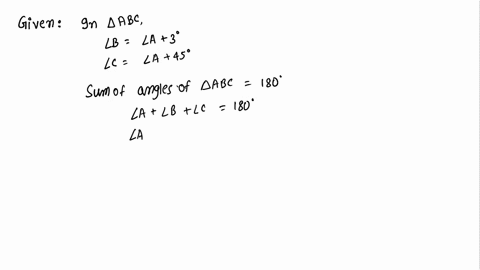 Given: In △ABC,
∠B = ∠A + 3°
∠C = ∠A + 45°
Sum of angles of △ABC = 180°
∠A + ∠B + ∠C = 180°
∠A